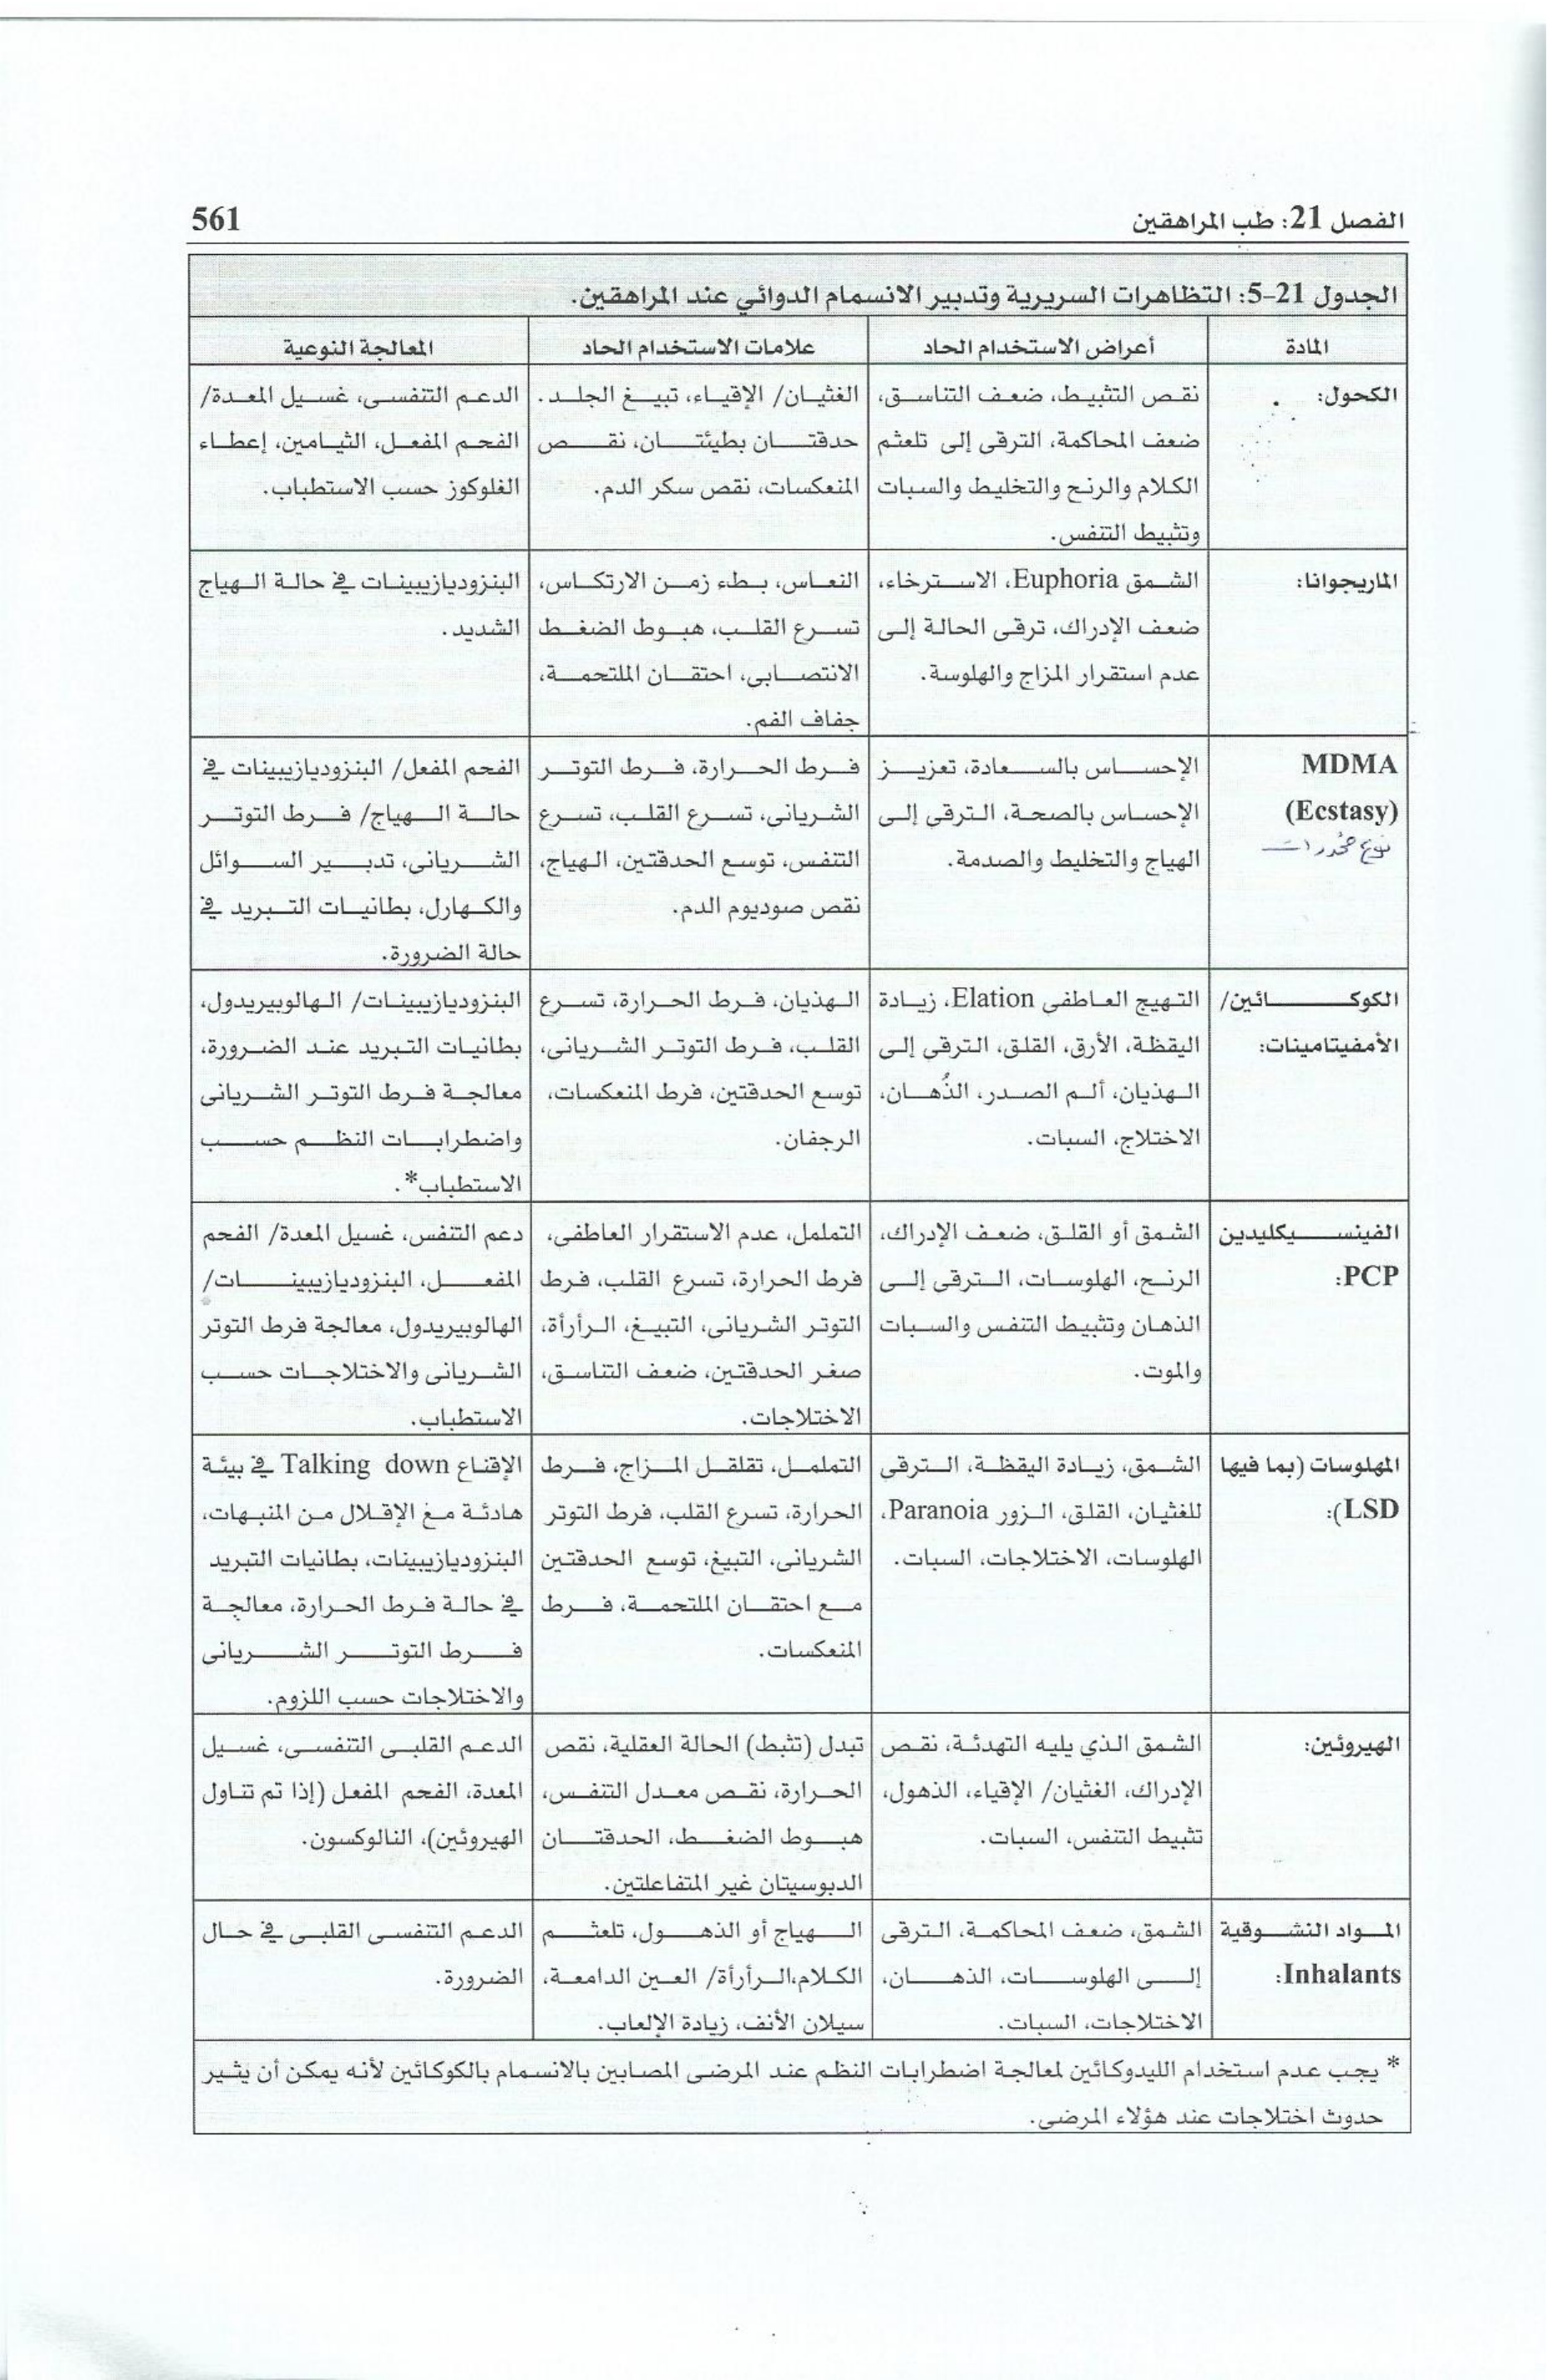 الفصل 21: طب المراهقين
561
الجدول 21-5: التظاهرات السريرية وتدبير الانسمام الدوائي عند المراهقين.
المادة
أعراض الاستخدام الحاد
علامات الاستخدام الحاد
المعالجة النوعية
الكحول:
نقص التثبيط، ضعف التناسق،
ضعف المحاكمة، الترقي إلى تلعثم
الكلام والرنح والتخليط والسبات
وتثبيط التنفس.
الغثيان/ الإقياء، تبيغ الجلد.
حدقتان بطيئتان، نقص
المنعكسات، نقص سكر الدم.
الدعم التنفسي، غسيل المعدة/
الفحم المفعل، الثيامين، إعطاء
الغلوكوز حسب الاستطباب.
الماريجوانا:
الشمق Euphoria، الاسترخاء،
ضعف الإدراك، ترقي الحالة إلى
عدم استقرار المزاج والهلوسة.
النعاس، بطء زمن الارتكاس،
تسرع القلب، هبوط الضغط
الانتصابي، احتقان الملتحمة،
جفاف الفم.
البنزوديازيبينات في حالة الهياج
الشديد.
MDMA
(Ecstasy)
نوع مخدرات
الإحساس بالسعادة، تعزيز
الإحساس بالصحة، الترقي إلى
الهياج والتخليط والصدمة.
فرط الحرارة، فرط التوتر
الشرياني، تسرع القلب، تسرع
التنفس، توسع الحدقتين، الهياج،
نقص صوديوم الدم.
الفحم المفعل/ البنزوديازيبينات في
حالة الهياج/ فرط التوتر
الشرياني، تدبير السوائل
والكهارل، بطانيات التبريد في
حالة الضرورة.
الكوكائين/
الأمفيتامينات:
التهيج العاطفي Elation، زيادة
اليقظة، الأرق، القلق، الترقي إلى
الهذيان، ألم الصدر، الذُهان،
الاختلاج، السبات.
الهذيان، فرط الحرارة، تسرع
القلب، فرط التوتر الشرياني،
توسع الحدقتين، فرط المنعكسات،
الرجفان.
البنزوديازيبينات/ الهالوبيريدول،
بطانيات التبريد عند الضرورة،
معالجة فرط التوتر الشرياني
واضطرابات النظم حسب
الاستطباب*.
الفينسيكليدين
PCP:
الشمق أو القلق، ضعف الإدراك،
الرنح، الهلوسات، الترقي إلى
الذهان وتثبيط التنفس والسبات
والموت.
التململ، عدم الاستقرار العاطفي،
فرط الحرارة، تسرع القلب، فرط
التوتر الشرياني، التبيغ، الرأرأة،
صغر الحدقتين، ضعف التناسق،
الاختلاجات.
دعم التنفس، غسيل المعدة/ الفحم
المفعل، البنزوديازيبينات/
الهالوبيريدول، معالجة فرط التوتر
الشرياني والاختلاجات حسب
الاستطباب.
المهلوسات (بما فيها
LSD):
الشمق، زيادة اليقظة، الترقي
للغثيان، القلق، الزور Paranoia،
الهلوسات، الاختلاجات، السبات.
التململ، تقلقل المزاج، فرط
الحرارة، تسرع القلب، فرط التوتر
الشرياني، التبيغ، توسع الحدقتين
مع احتقان الملتحمة، فرط
المنعكسات.
الإقناع Talking down في بيئة
هادئة مغ الإقلال من المنبهات،
البنزوديازيبينات، بطانيات التبريد
في حالة فرط الحرارة، معالجة
فرط التوتر الشرياني
والاختلاجات حسب اللزوم.
الهيروئين:
الشمق الذي يليه التهدئة، نقص
الإدراك، الغثيان/ الإقياء، الذهول،
تثبيط التنفس، السبات.
تبدل (تثبط) الحالة العقلية، نقص
الحرارة، نقص معدل التنفس،
هبوط الضغط، الحدقتان
الدبوسيتان غير المتفاعلتين.
الدعم القلبي التنفسي، غسيل
المعدة، الفحم المفعل (إذا تم تناول
الهيروئين)، النالوكسون.
المواد النشوقية
Inhalants:
الشمق، ضعف المحاكمة، الترقي
إلى الهلوسات، الذهان،
الاختلاجات، السبات.
الهياج أو الذهول، تلعثم
الكلام،الرأرأة/ العين الدامعة،
سيلان الأنف، زيادة الإلعاب.
الدعم التنفسي القلبي في حال
الضرورة.
* يجب عدم استخدام الليدوكائين لمعالجة اضطرابات النظم عند المرضى المصابين بالانسمام بالكوكائين لأنه يمكن أن يثير
حدوث اختلاجات عند هؤلاء المرضى.